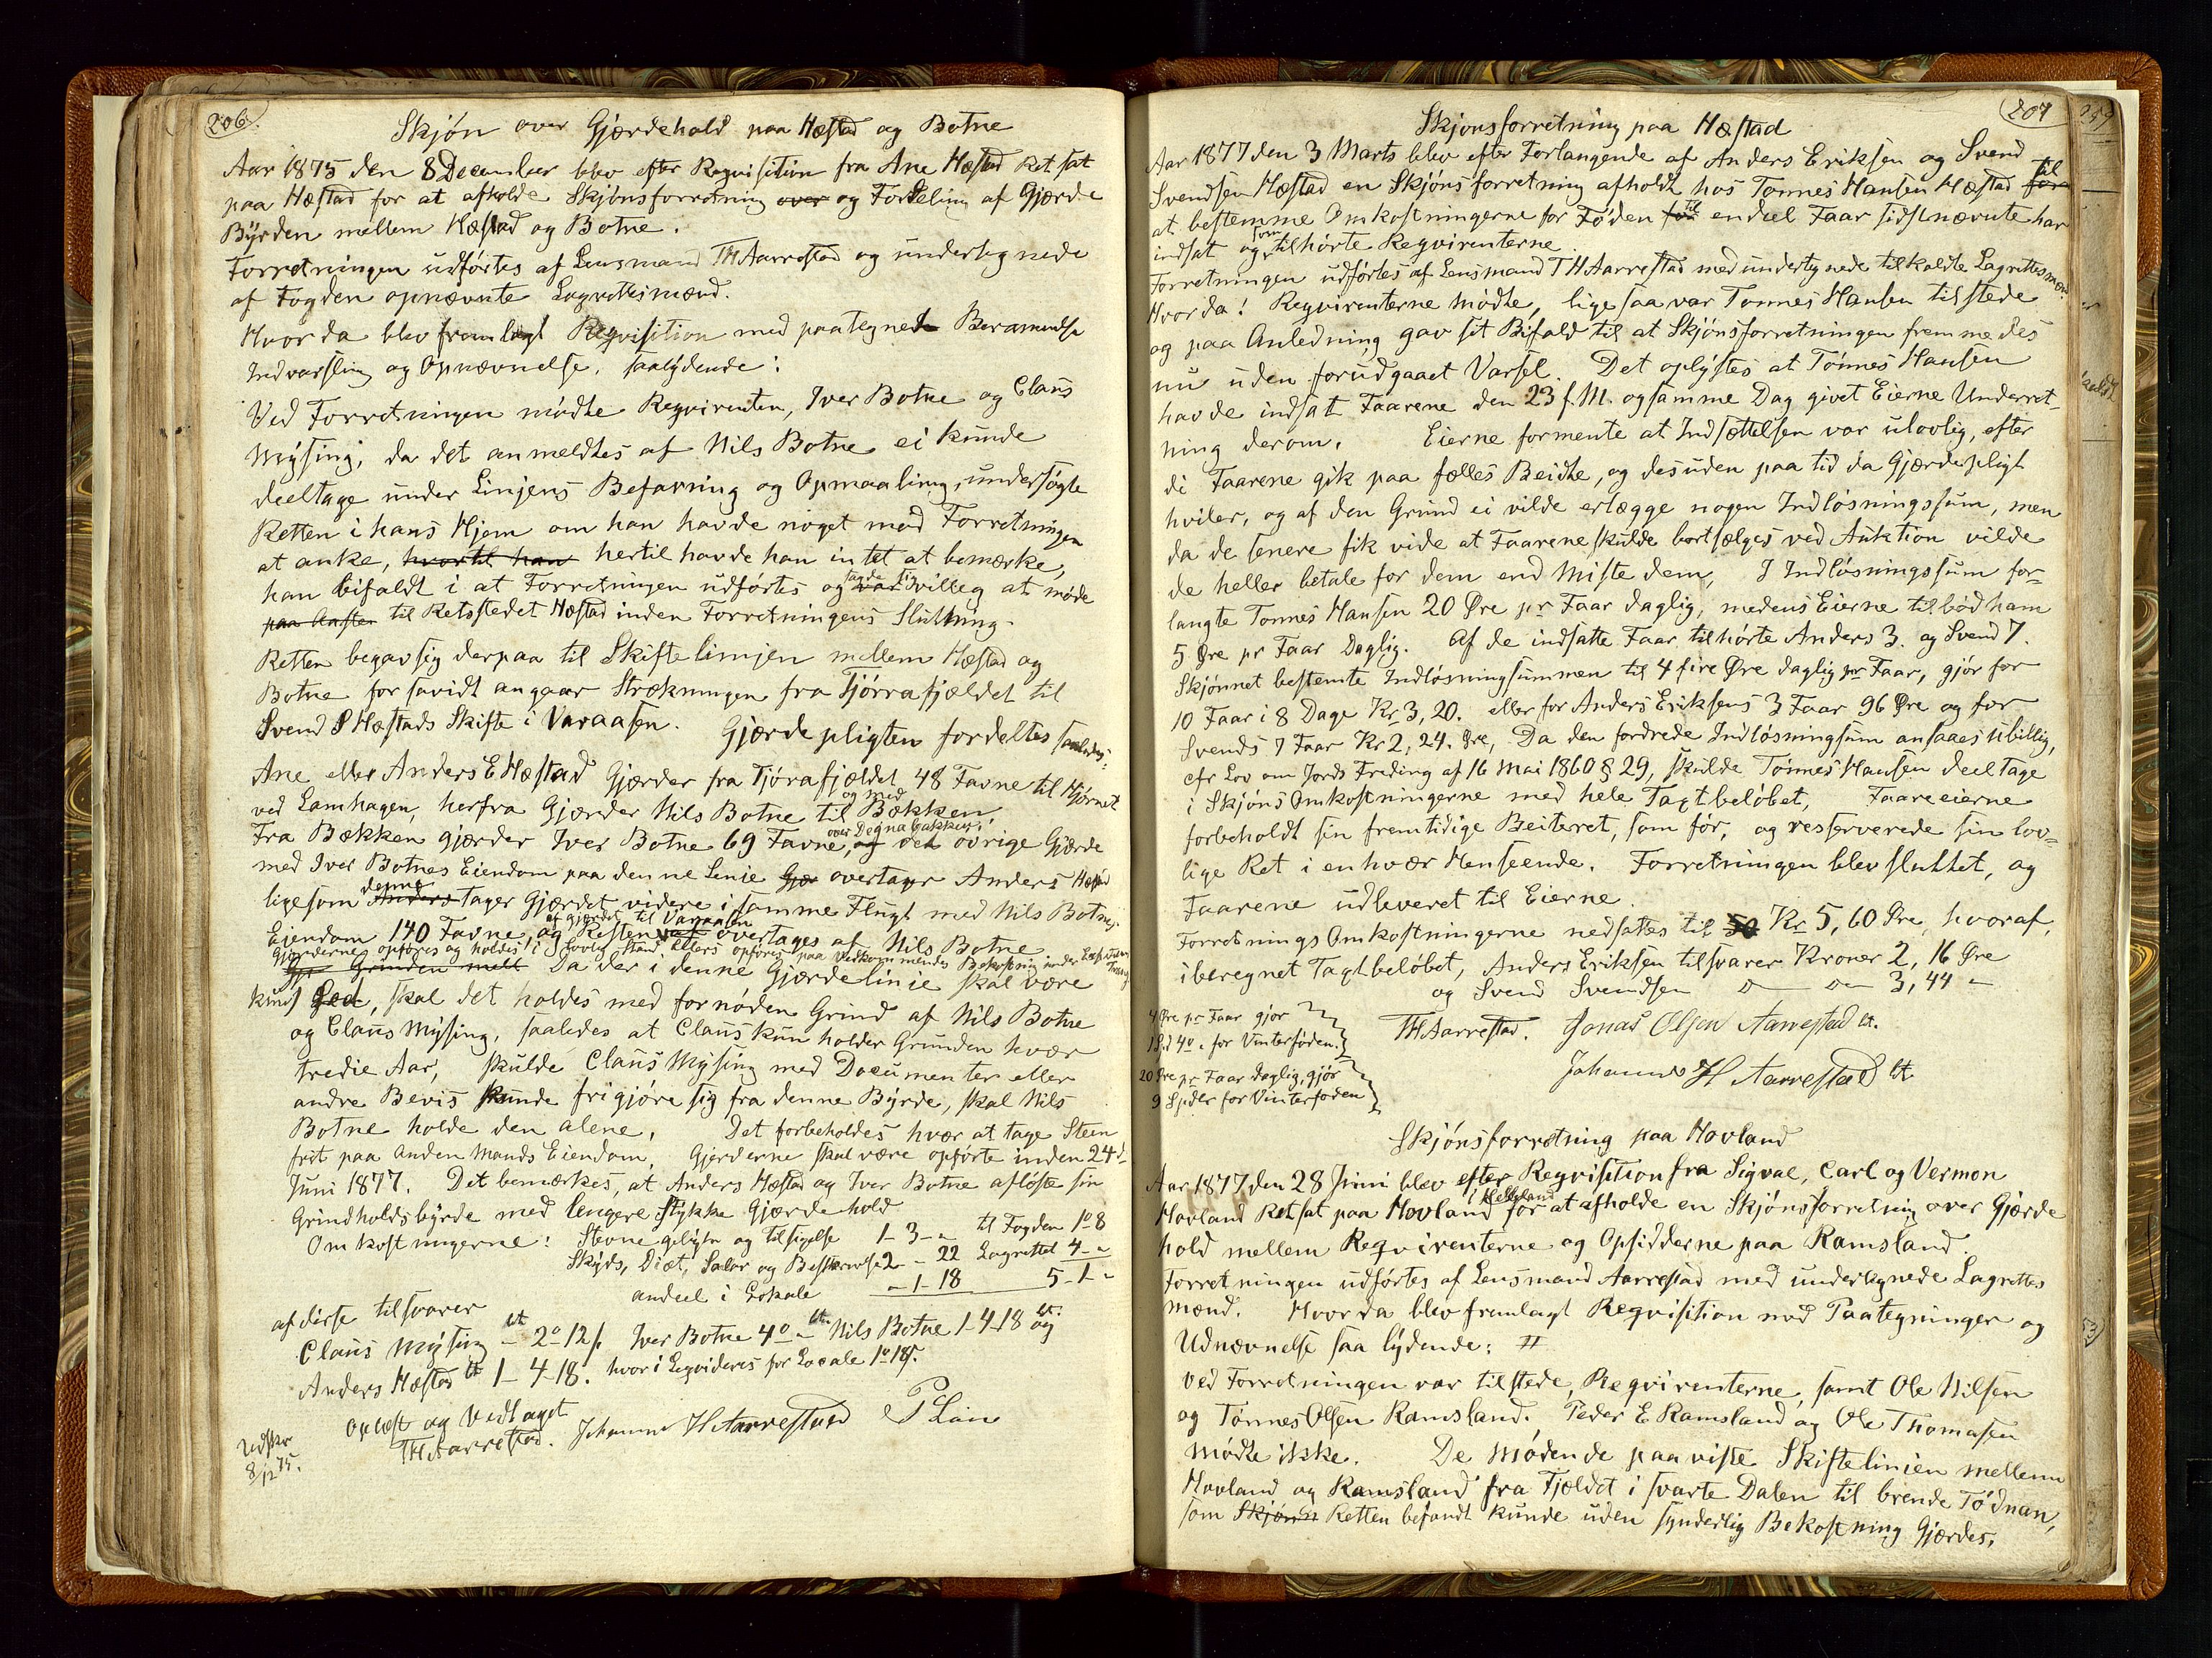 206.
Skjøn over Gjærdehold paa Hæstad og Botne
Aar 1875 den 8 December blev efter Reqvisition fra Ane Hæstad Ret sat
paa Hæstad for at afholde Skjønsforretning over og Fordeling af Gjærde
Byrden mellem Hæstad og Botne.
Forretningen udførtes af Lensmand TH Aarrestad og undertegnede
af Fogden opnævnte Lagrettesmænd.
Hvorda blev fremlagt Reqvisition med paategnede Berammelse
Indvarsling og Opnævnelse, saalydende:
Ved Forretningen mødte Reqvirenten, Iver Botne og Claus
Mysing, da det anmeldtes af Nils Botne ei kunde
deeltage under Linjens Befaring og Opmaaling, undersøgte
Retten i hans Hjem om han havde noget mod Forretningen
at anke, hvortil han hertil havde han intet at bemærke,
han bifaldt i at Forretningen udførtes og var sagde sig villeg at møde
paa Aasten til Retsstedet Hæstad inden Forretningens Slutning.
Retten begav sig derpaa til Skiftelinjen mellem Hæstad og
Botne forsavidt angaar Strækningen fra Tjørrafjældet til
Svend S Hæstads Skifte i Varaasen. Gjærdepligten fordeltes saaledes:
Ane eller Anders E Hæstad Gjærder fra Tjørafjældet 48 Favne til Hjørnet
ved Lamhagen, herfra Gjærder Nils Botne til og med Bækken.
Fra Bækken gjærder Iver Botne 69 Favne, over Degnabakken, og det øvrige Gjærde
med Iver Botnes Eiendom paa denne Linie Gjær overtager Anders Hæstad
ligesom Anders denne tager Gjærdet videre i samme Flugt med Nils Botnes
Eiendom 140 Favne, og Resten af gjærdet til Varaasen overtages af Nils Botne
Gjærderne opføres og holdes i lovlig Stand, ellers opføres paa Vedkommendes Bekostning under
Gjær Grinden melt Da der i denne Gjærdelinie skal være
kuns Led, skal det holdes med fornøden Grind af Nils Botne
og Claus Mysing, saaledes at Claus kun holder Grinden hvær
tredie Aar, skulde Claus Mysing med Documenter eller
andre Bevis kunde frigjøre sig fra denne Byrde, skal Nils
Botne holde den alene. Det forbeholdes hvær at tage Steen
frit paa Anden Mands Eiendom. Gjerderne skal være opførte inden 24d
Juni 1877. Det bemærkes, at Anders Hæstad og Iver Botne afløste sin
Grindholdsbyrde med lengere Stykke Gjærdehold
Omkostningerne: Stevne og tilsigelse 1-3-" til Fogden 1º8
Skyds, Diæt, Salær og Beskrivelse 2-"-22 Lagrettet 4-"
andeel i Lokale -1-18 5-1-"
af disse tilsvarer
Claus Mysing lt - 2º12 s. Iver Botne 4º-" lt. Nils Botne 1-4-18 lt. og
Anders Hæstad lt 1-4-18. hvori Liqvideres for Locale 1º18 s.
Oplæst og Vedtaget
TH Aarrestad. Johannes H Aarrestad P Lain
Udskr
8/12 75.
207
Skjønsforretning paa Hæstad
Aar 1877 den 3 Marts blev efter Forlangende af Anders Eriksen og Svend
Svendsen Hæstad en Skjønsforretning afholdt hos Tønnes Hansen Hæstad for til
at bestemme Omkostningerne for Føden for til endeel Faar sidstnævnte har
indsat og som tilhørte Reqvirenterne.
Forretningen udførtes af Lensmand TH Aarrestad med undertegnede tilkaldte Lagrettesmæn.
Hvorda! Reqvirenterne mødte, ligesaa var Tønnes Hansen tilstede
og paa Anledning gav sit Bifald til at Skjønsforretningen fremmedes
nu uden forudgaaet Varsel. Det oplystes at Tønnes Hansen
havde indsat Faarene den 23 f.M. og samme Dag givet Eierne Underret-
ning derom. Eierne formente at Indsættelsen var ulovlig, efter
di Faarene gik paa fælles Beidte, og desuden paa tid da Gjærdepligt
hviler, og af den Grund ei vilde erlægge nogen Indløsningssum, men
da de senere fik vide at Faarene skulde bortsælges ved Auktion vilde
de heller betale for dem end Miste dem, I Indløsningssum for-
langte Tønnes Hansen 20 Øre pr Faar daglig, medens Eierne tilbød ham
5 Øre pr Faar Daglig. Af de indsatte Faar tilhørte Anders 3. og Svend 7.
Skjønnet bestemte Indløsningsummen til 4 fire Øre daglig pr Faar, gjør for
10 Faar i 8 Dage Kr 3,20. eller for Anders Eriksens 3 Faar 96 Øre og for
Svends 7 Faar Kr 2,24. Øre, Da den fordrede Indløsningsum ansaaes ubillig,
cfr Lov om Jords Freding af 16 Mai 1860 § 29, skulde Tønnes Hansen deeltage
i Skjøns Omkostningerne med hele Tagtbeløbet, Faareeierne
forbeholdt sin fremtidige Beiteret, som før, og resserverede sin lov-
lige Ret i enhvær Henseende. Forretningen blev sluttet, og
Faarene udleveret til Eierne.
Forretnings Omkostningerne nedsattes til 50 Kr 5,60 Øre, hvoraf,
iberegnet Tagtbeløbet, Anders Eriksen tilsvarer Kroner 2,16 Øre
og Svend Svendsen D — D 3,44 "
4 Øre pr Faar gjør
1 Spd 4º " for Vinterføden.
20 Øre pr Faar daglig, gjør
9 Spdlr for Vinterføden
TH Aarrestad. Jonas Olsen Aarrestad lt.
Johannes H Aarrestad lt
Skjønsforretning paa Hovland
Aar 1877 den 28 Juni blev efter Reqvisition fra Sigval, Carl og Vermon
Hovland Ret sat paa Hovland i Helleland for at afholde en Skjønsforretning over Gjærde
hold mellem Reqvirenterne og Opsidderne paa Ramsland.
Forretningen udførtes af Lensmand Aarrestad med undertegnede Lagrettes
mænd. Hvorda blev fremlagt Reqvisition med Paategninger og
Udnævnelse saa lydende: #
Ved Forretningen var tilstede, Reqvirenterne, samt Ole Nilsen
og Tønnes Olsen Ramsland. Peder E Ramsland og Ole Thomasen
mødte ikke. De Mødende paaviste Skiftelinien mellem
Hovland og Ramsland fra Fjældet i svarte Dalen til brende Tødnan,
som Skjønn Retten befandt kunde uden synderlig Bekostning Gjærdes.